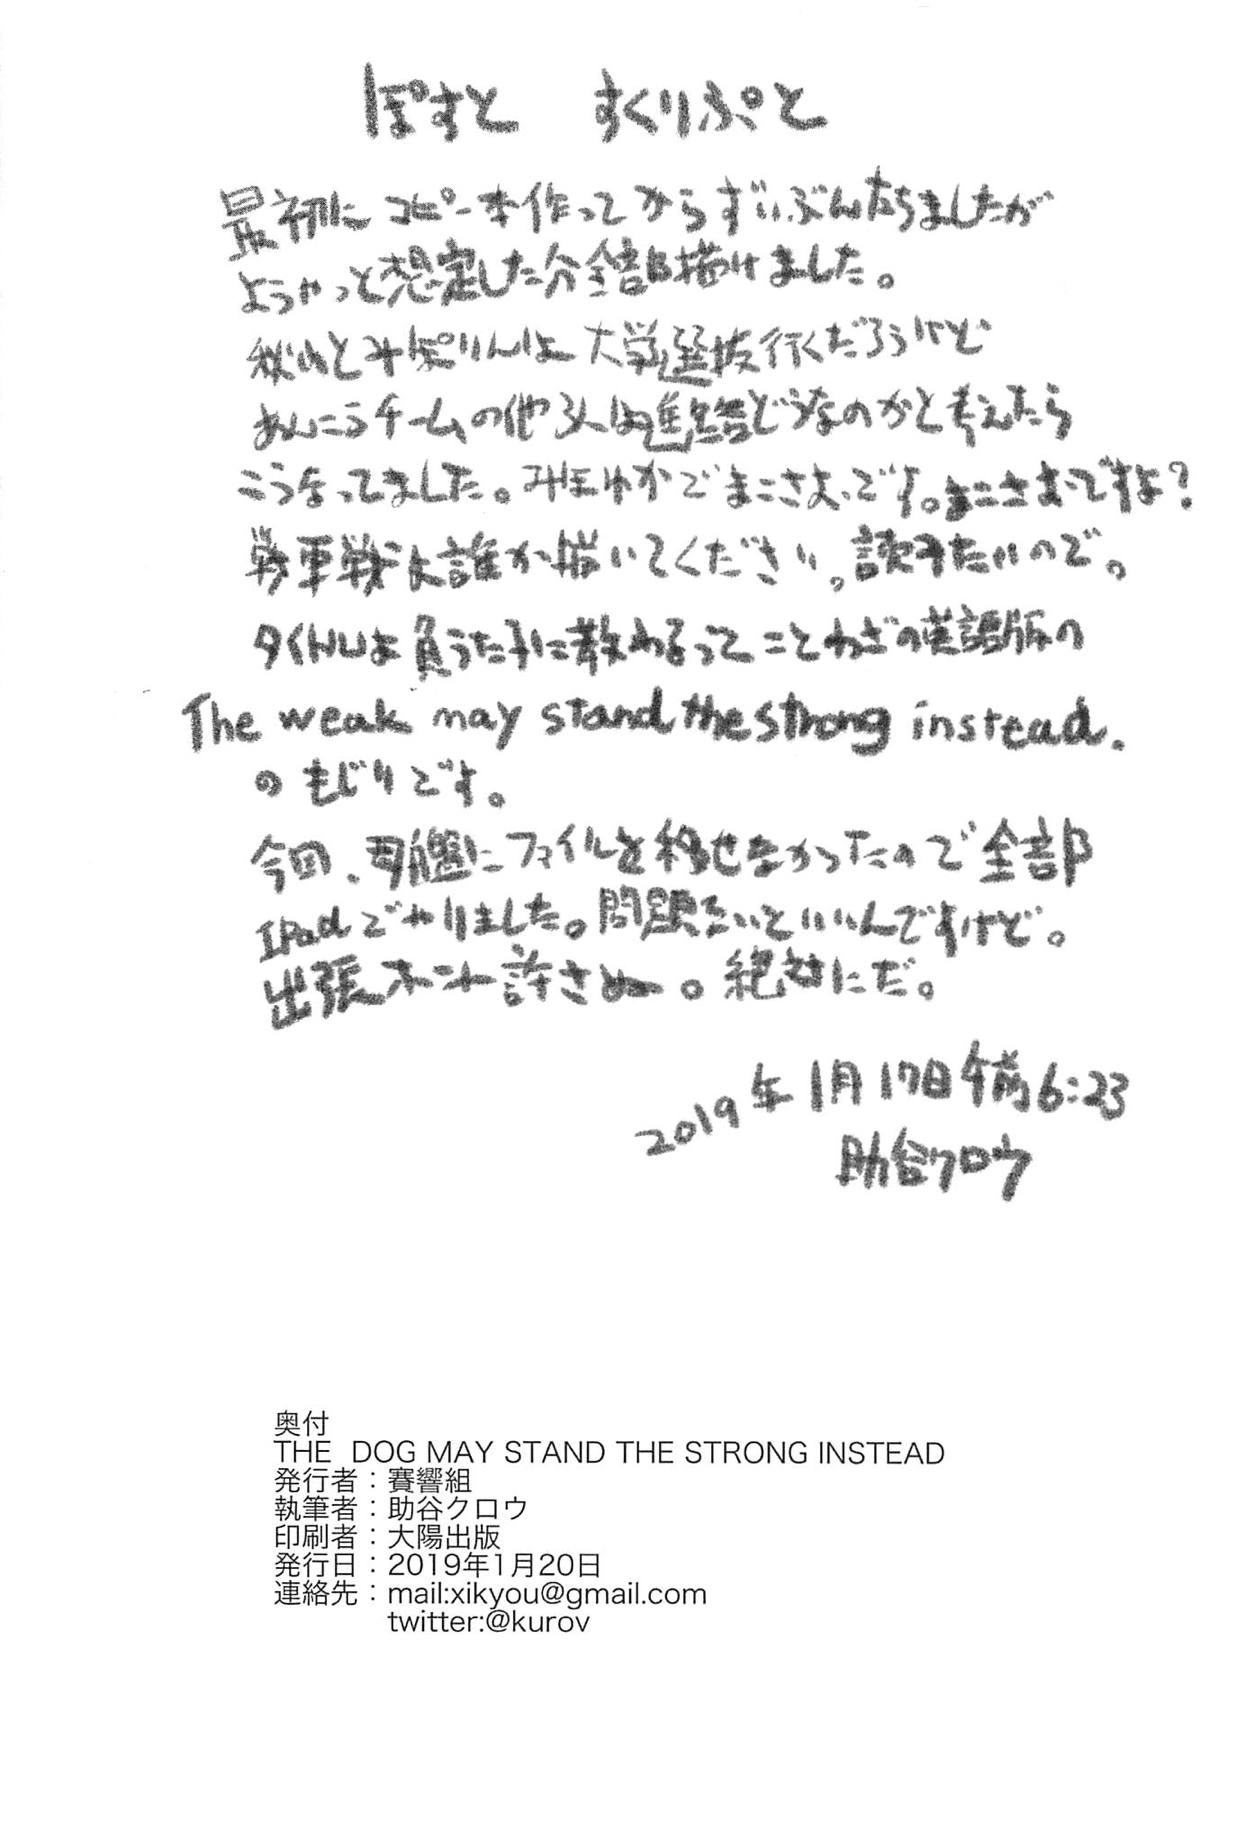 ぽすと すくりぷと
最初に コピー本作ってからずいぶんたちましたが
ようやっと想定した分全部描けました。
秋山とみぽりんは 大学選抜行くだろうけど
あんこうチームの他3人は進路どうなのかと考えたら
こうなってました。みほゆかでまこさおです。まこさおですよ?
戦車戦は誰か描いてください。読みたいので。
タイトルは負うた子に教わるってことわざの英語版の
The weak may stand the strong instead.
のもじりです。
今回、母艦にファイルを移せなかったので全部
iPadでやりました。問題ないといいんですけど。
出張ホント許さぬー。絶対にだ。
2019年1月17日午前6:23
助谷クロウ
奥付
THE DOG MAY STAND THE STRONG INSTEAD
発行者:賽響組
執筆者:助谷クロウ
印刷者:大陽出版
発行日:2019年1月20日
連絡先:mail:xikyou@gmail.com
twitter:@kurov